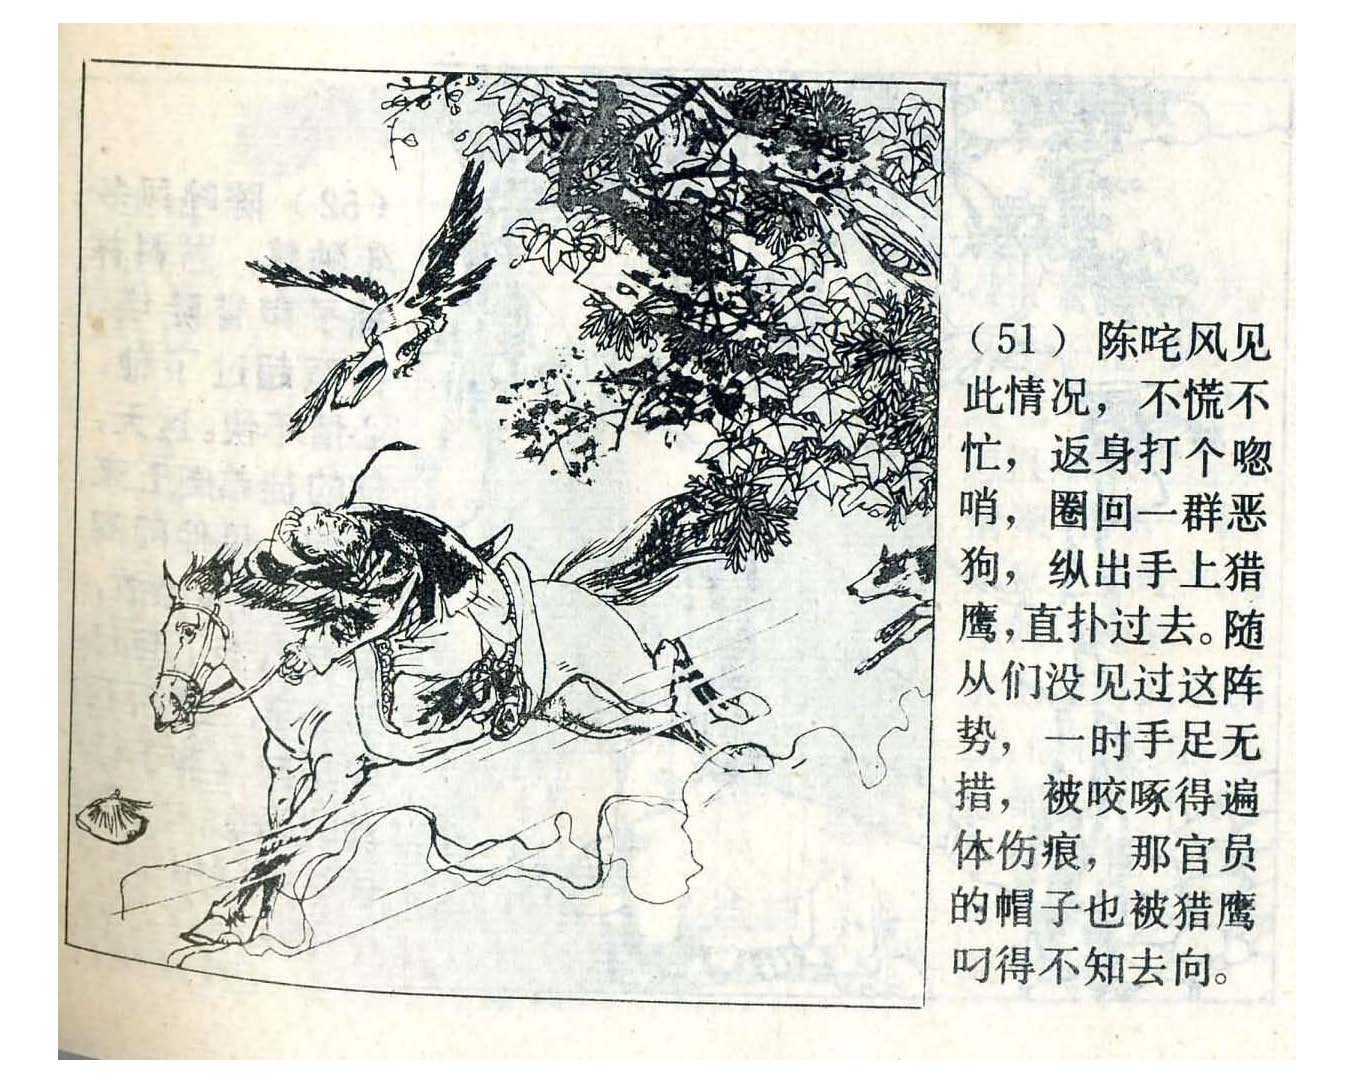 （51）陈咤风见
此情况，不慌不
忙，返身打个唿
哨，圈回一群恶
狗，纵出手上猎
鹰，直扑过去。随
从们没见过这阵
势，一时手足无
措，被咬啄得遍
体伤痕，那官员
的帽子也被猎鹰
叼得不知去向。